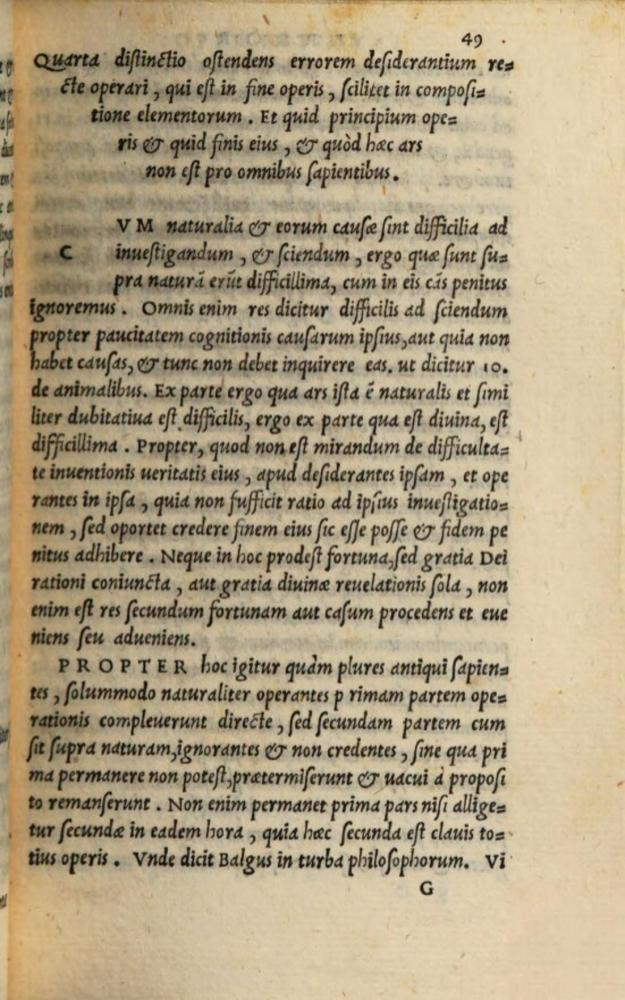 49
Quarta distinctio ostendens errorem desiderantium re=
cte operari, qui est in fine operis, scilicet in composi=
tione elementorum. Et quid principium ope=
ris & quid finis eius, & quòd hæc ars
non est pro omnibus sapientibus.
C VM naturalia & eorum causæ sint difficilia ad
inuestigandum, & sciendum, ergo quæ sunt su=
pra naturã erũt difficillima, cum in eis cãs penitus
ignoremus. Omnis enim res dicitur difficilis ad sciendum
propter paucitatem cognitionis causarum ipsius, aut quia non
habet causas, & tunc non debet inquirere eas. ut dicitur 10.
de animalibus. Ex parte ergo qua ars ista ẽ naturalis et simi
liter dubitatiua est difficilis, ergo ex parte qua est diuina, est
difficillima. Propter, quod non est mirandum de difficulta=
te inuentionis ueritatis eius, apud desiderantes ipsam, et ope
rantes in ipsa, quia non sufficit ratio ad ipsius inuestigatio=
nem, sed oportet credere finem eius sic esse posse & fidem pe
nitus adhibere. Neque in hoc prodest fortuna, sed gratia Dei
rationi coniuncta, aut gratia diuinæ reuelationis sola, non
enim est res secundum fortunam aut casum procedens et eue
niens seu adueniens.
PROPTER hoc igitur quàm plures antiqui sapien=
tes, solummodo naturaliter operantes p rimam partem ope=
rationis compleuerunt directe, sed secundam partem cum
sit supra naturam, ignorantes & non credentes, sine qua pri
ma permanere non potest, prætermiserunt & uacui à proposi
to remanserunt. Non enim permanet prima pars nisi allige=
tur secundæ in eadem hora, quia hæc secunda est clauis to=
tius operis. Vnde dicit Balgus in turba philosophorum. Vi
G